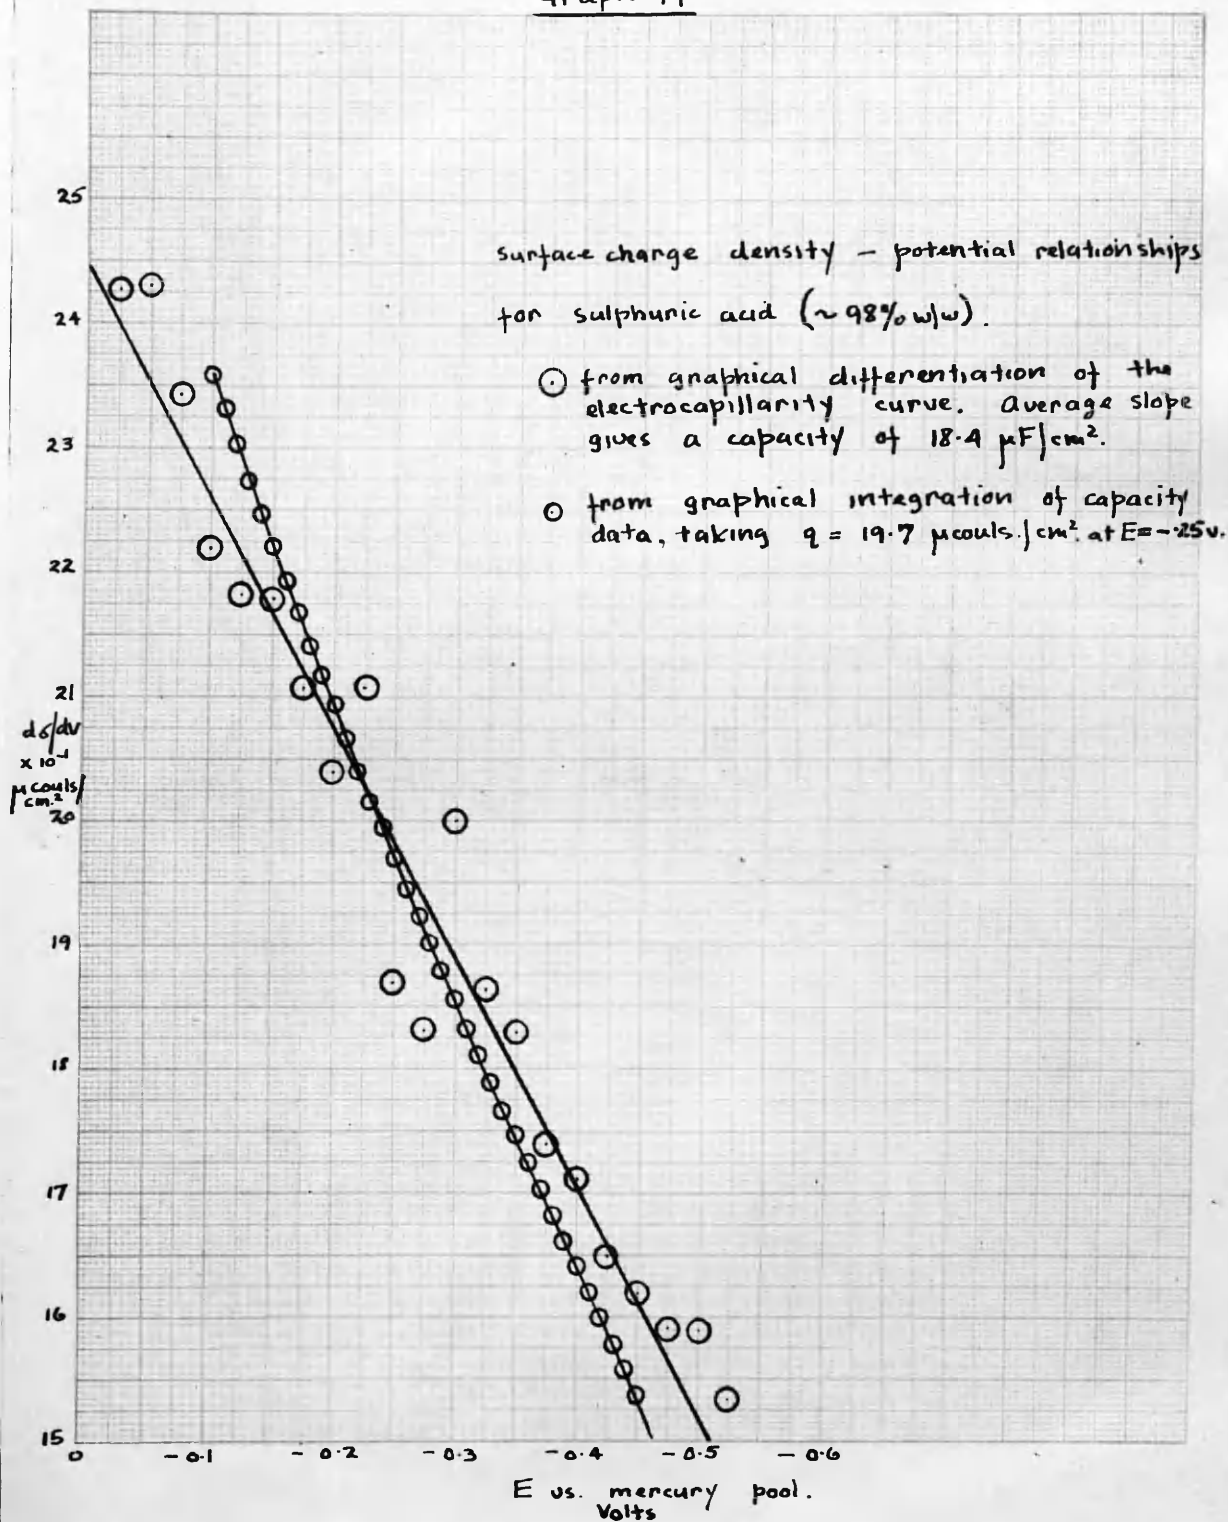 25
24
23
22
21
20
19
18
17
16
15
dσ/dv
x 10⁻¹
μcouls/
cm.²
surface charge density – potential relationships
for sulphuric acid (~ 98% w/w).
⊙ from graphical differentiation of the
electrocapillarity curve. Average slope
gives a capacity of 18.4 μF/cm².
⊙ from graphical integration of capacity
data, taking q = 19.7 μcouls./cm² at E=-.25v.
0 -0.1 -0.2 -0.3 -0.4 -0.5 -0.6
E vs. mercury pool.
Volts